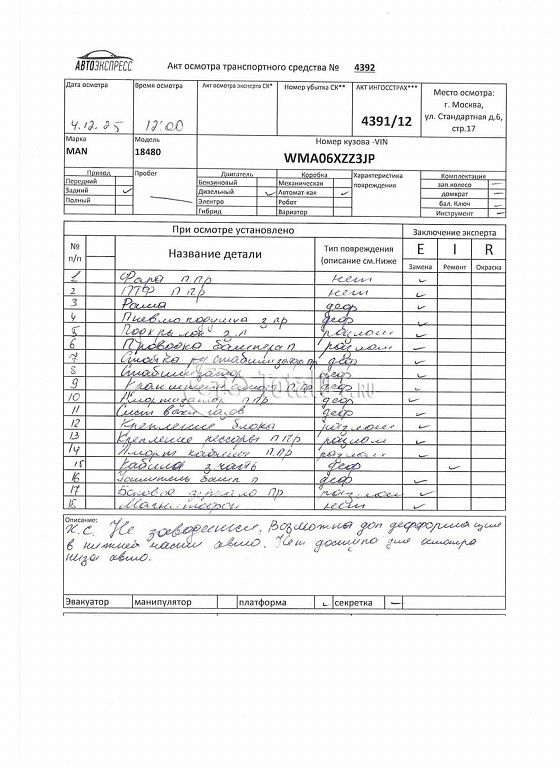 АВТОЭКСПРЕСС
Акт осмотра транспортного средства № 4392
Дата осмотра Время осмотра Акт осмотра эксперта СК* Номер убытка СК** АКТ ИНГОССТРАХ*** Место осмотра:
г. Москва,
ул. Стандартная д.6,
стр.17
4.12.25 12:00 4391/12
Марка Модель Номер кузова -VIN
MAN 18480 WMA06XZZ3JP
Привод Пробег Двигатель Коробка Характеристика повреждения Комплектация
Передний Бензиновый Механическая зап.колесо —
Задний ✓ Дизельный ✓ Автомат-кая ✓ домкрат —
Полный Электро Робот бал. Ключ —
Гибрид Вариатор Инструмент —
При осмотре установлено Заключение эксперта
№ п/п Название детали Тип повреждения (описание см.Ниже E I R
Замена Ремонт Окраска
1 Фара п.пр нет ✓
2 ПТФ п пр нет ✓
3 Рама деф ✓
4 Пневмоподушка з пр деф ✓
5 Подкрылок з л разлом ✓
6 Проводка бампера п разлом ✓
7 Стойка стабилизатора пр деф ✓
8 Стабилизатор деф ✓
9 Кронштейн п пр деф ✓
10 Амортизатор п.пр деф ✓
11 Сист вых газов деф ✓
12 Крепление блока разлом ✓
13 Крепление рессоры п пр разлом ✓
14 Аморт кабины п.пр разлом ✓
15 Кабина з часть деф ✓
16 Усилитель бампе п деф ✓
17 Боковое зеркало пр разлом ✓
18 нет ✓
Описание:
Не заводится. Возможны доп деформации
в нижней части авто. Нет доступа для осмотра
низа авто.
Эвакуатор манипулятор платформа ✓ секретка —